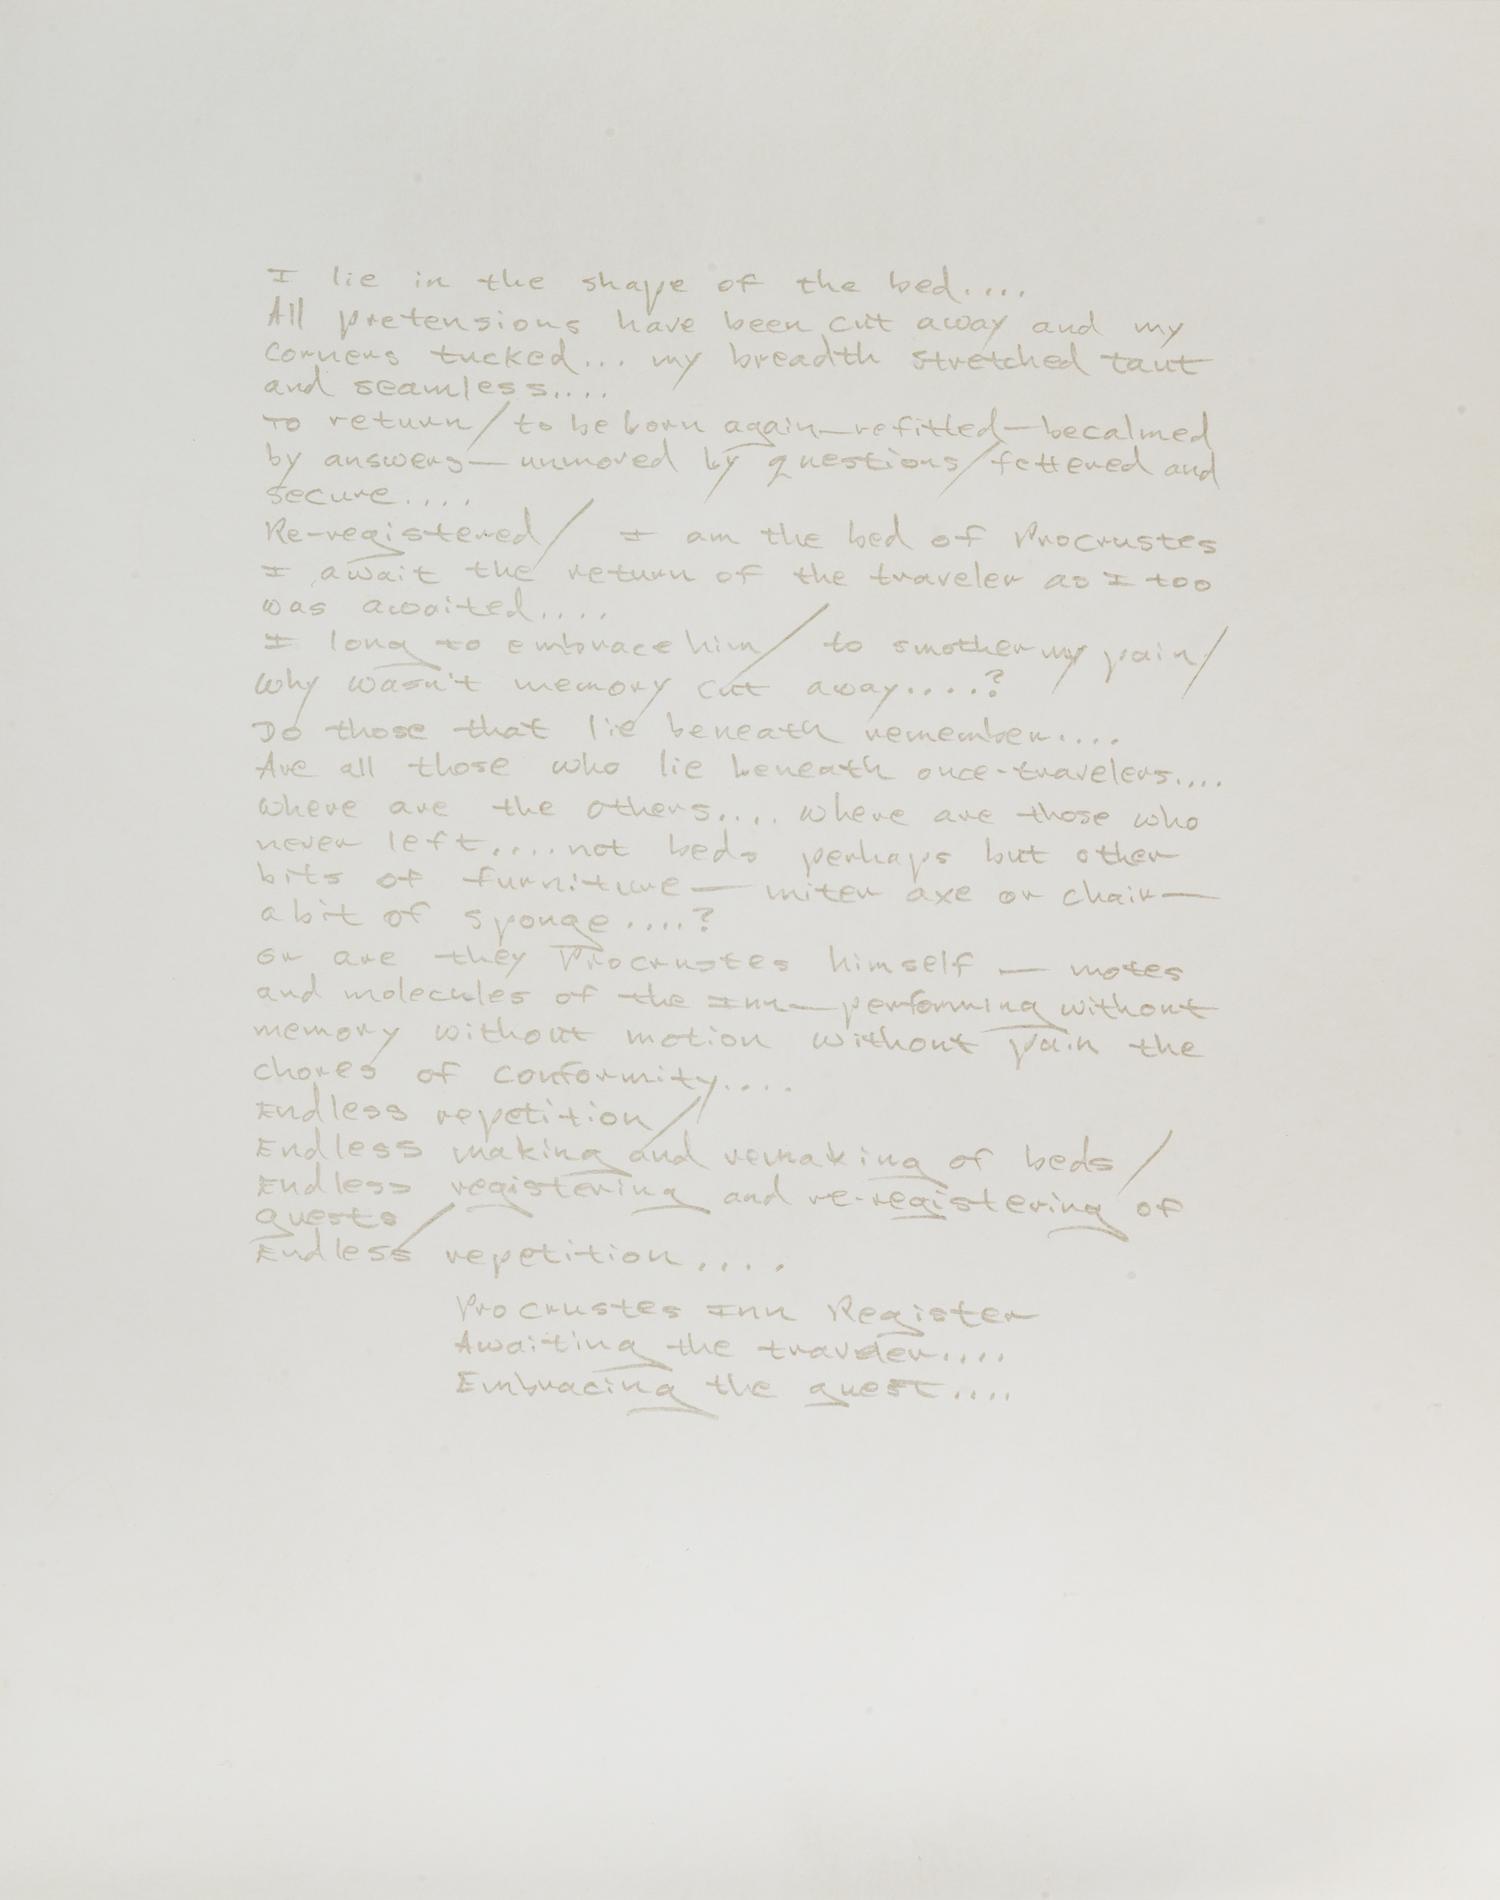 I lie in the shape of the bed....
All pretensions have been cut away and my
corners tucked... my breadth stretched taut
and seamless....
To return/to be born again—refitted—becalmed
by answers—unmoved by questions/fettered and
secure....
Re-registered/ I am the bed of Procrustes
I await the return of the traveler as I too
was awaited....
I long to embrace him/ to smother my pain/
Why wasn't memory cut away....?
Do those that lie beneath remember....
Are all those who lie beneath once-travelers....
Where are the others.... Where are those who
never left....not beds perhaps but other
bits of furniture—miter axe or chair—
a bit of sponge....?
Or are they Procrustes himself — motes
and molecules of the Inn—performing without
memory without motion without pain the
chores of conformity....
Endless repetition/
Endless making and remaking of beds/
Endless registering and re-registering of
guests/
Endless repetition....
Procrustes Inn Register
Awaiting the traveler....
Embracing the guest....